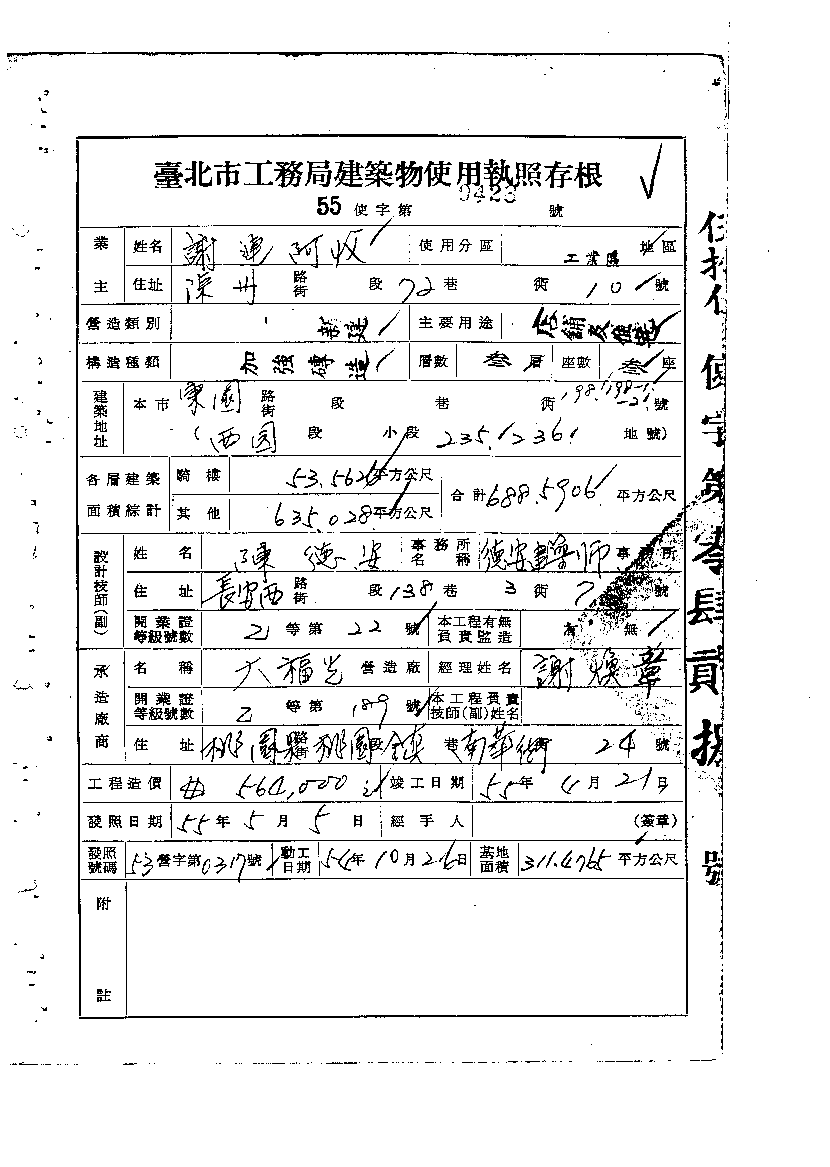 臺北市工務局建築物使用執照存根
55 使字第 0428 號
業主 姓名 謝連阿收 使用分區 工業區 地區
住址 深州 路街 段 72 巷 衖 10 號
營造類別 新建 主要用途 店舖及住宅
構造種類 加強磚造 層數 層 座數 座
建築地址 本市 東園 路街 段 巷 衖 198.198-1.-2. 號
(西园 段 小段 235.236. 地號)
各層建築面積綜計 騎樓 53.5626 平方公尺 合計 688.5906 平方公尺
其他 635.028 平方公尺
設計技師(副) 姓名 陳德安 事務所名稱 德安建築師 事務所
住址 長安西 路街 段 138 巷 3 衖 7 號
開業證等級號數 乙 等第 22 號 本工程有無負責監造 有 無
承造廠商 名稱 大福光 營造廠 經理姓名 謝煥章
開業證等級號數 乙 等第 189 號 本工程負責技師(副)姓名
住址 桃園縣 路街 桃園 段 鎮 巷 南華街 衖 24 號
工程造價 564,000 竣工日期 55 年 4 月 21 日
發照日期 55 年 5 月 5 日 經手人 (簽章)
發照號碼 53 營字第 0317 號 動工日期 54 年 10 月 26 日 基地面積 311.4765 平方公尺
附註
使字第零肆貳捌號